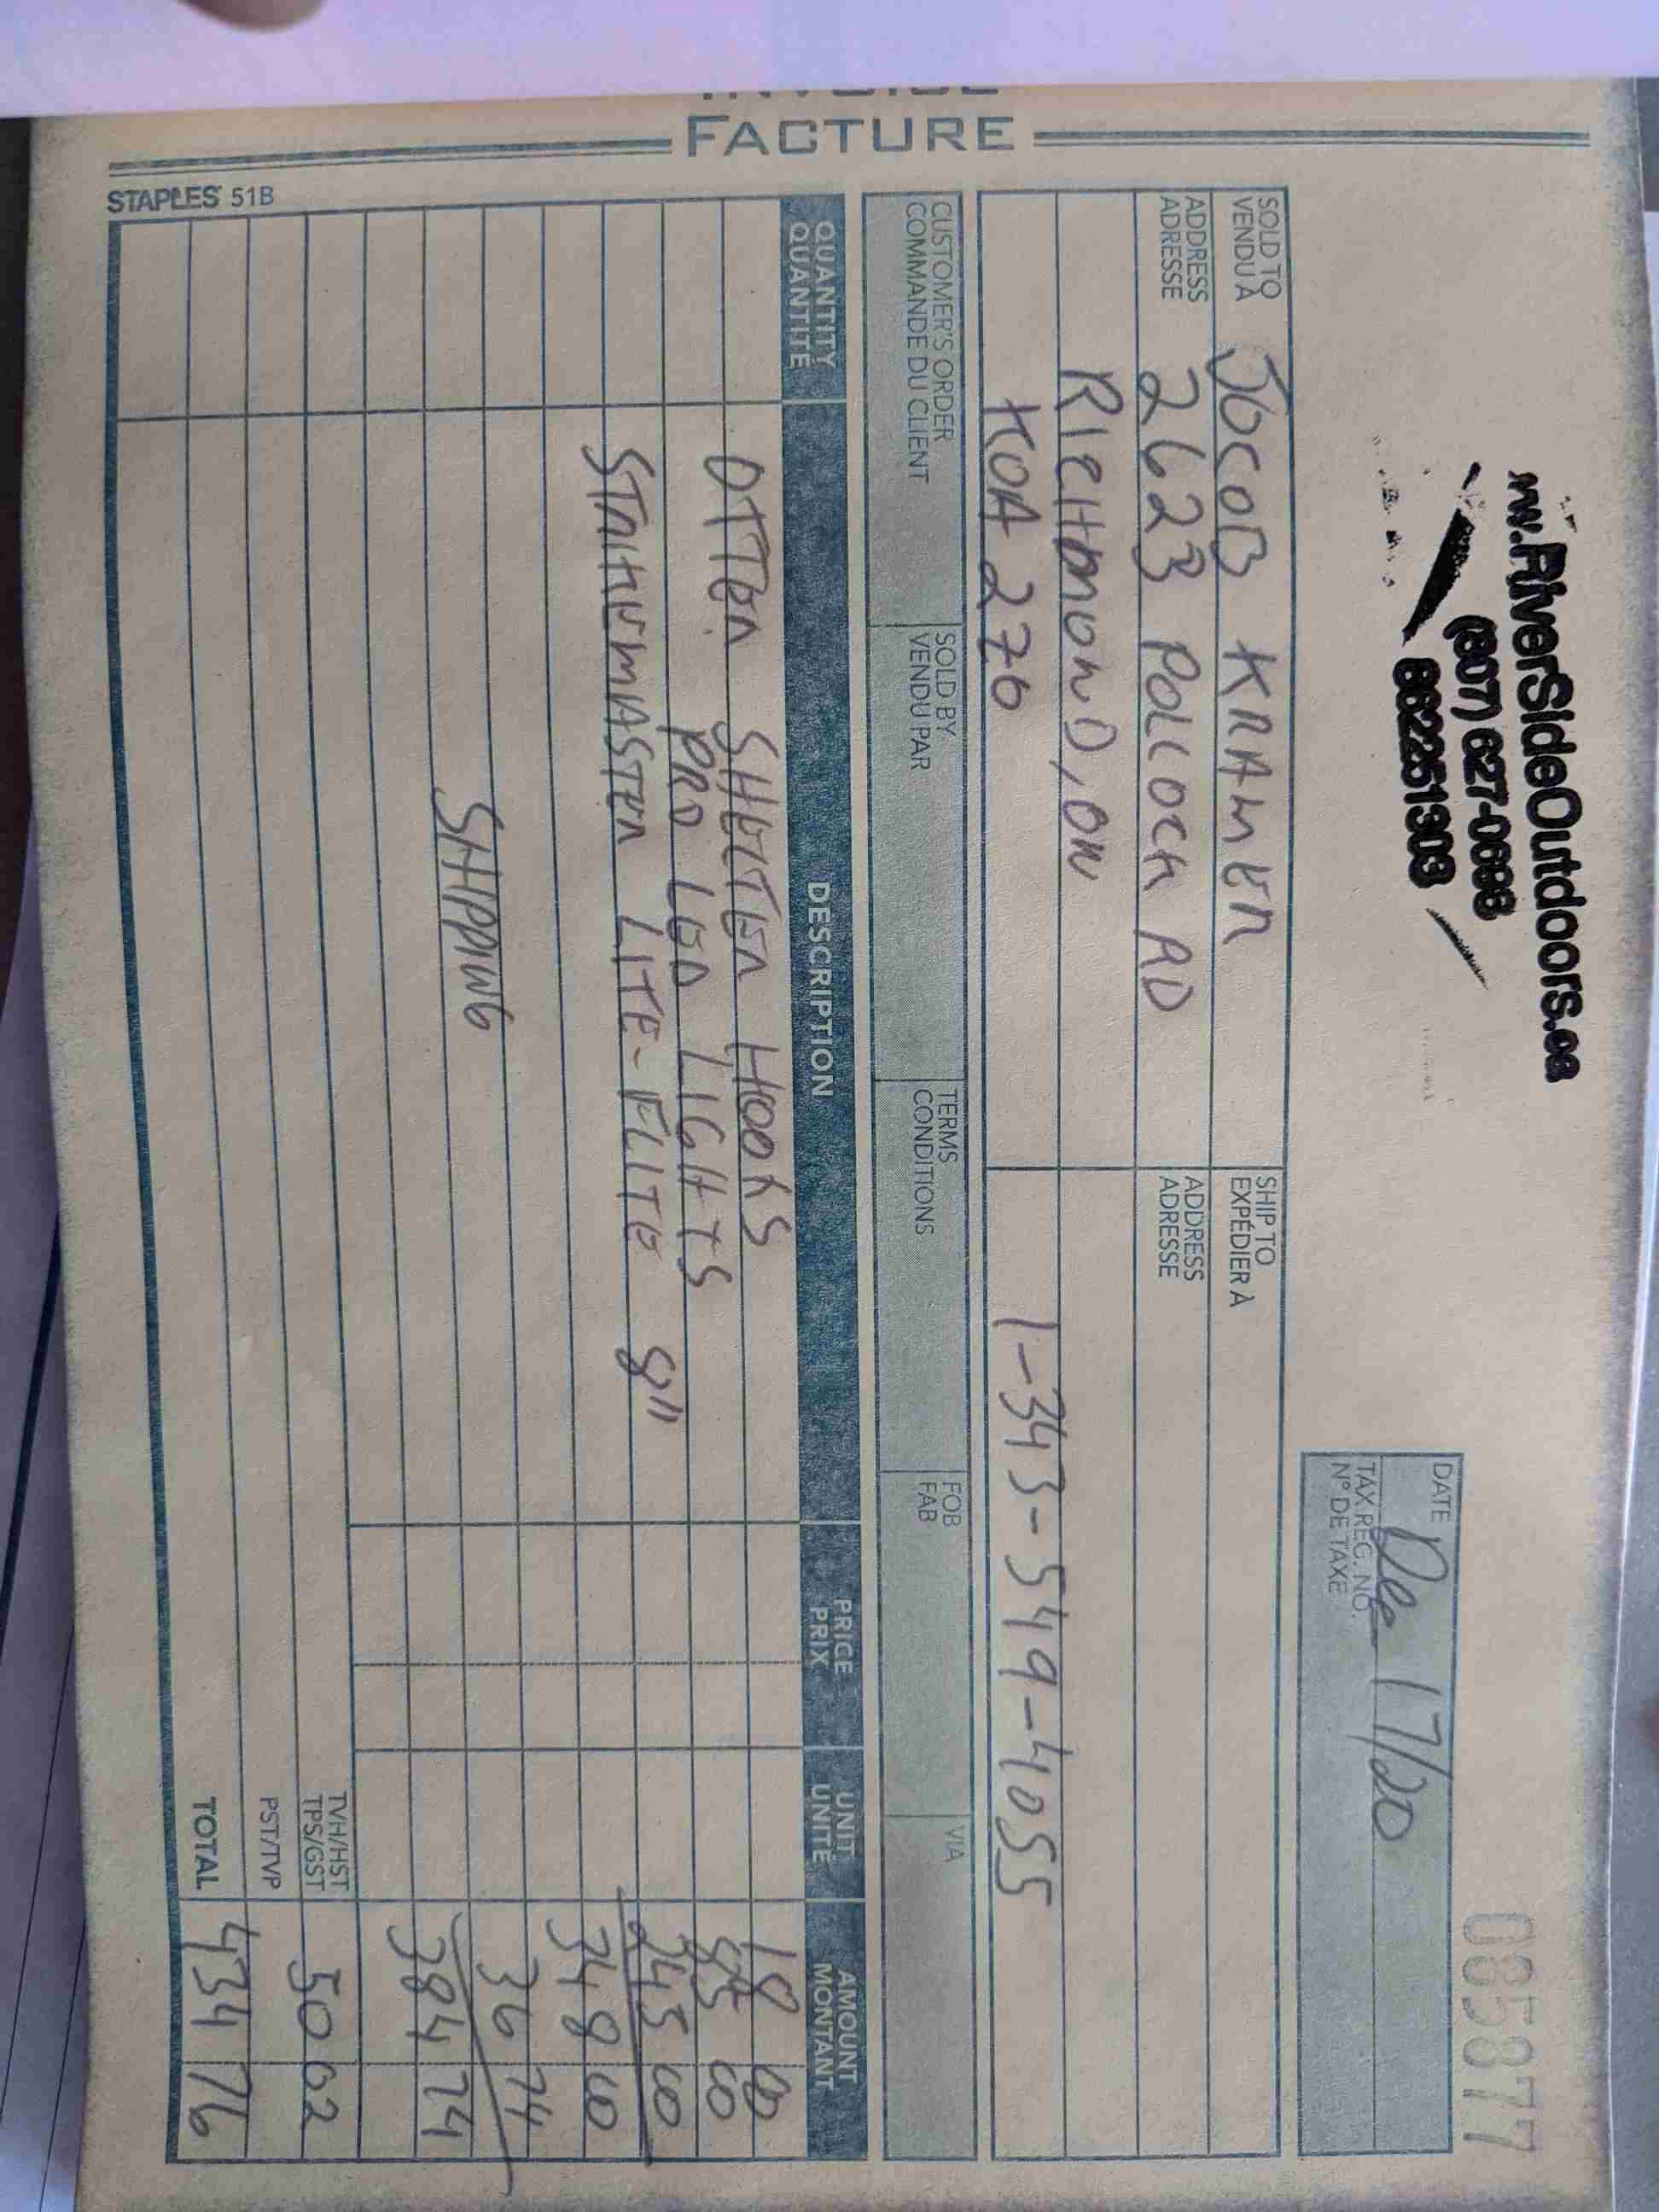 INVOICE
FACTURE
www.RiverSideOutdoors.ca
(807) 627-0698
862251303
085877
DATE Dec 17/20
TAX REG. NO.
N° DE TAXE
SOLD TO
VENDU À
JOCOB KRAMER
SHIP TO
EXPÉDIER À
ADDRESS
ADRESSE
2623 POLLOCK RD
ADDRESS
ADRESSE
RICHMOND, ON
K0A 2Z0
1-343-549-4055
CUSTOMER'S ORDER
COMMANDE DU CLIENT
SOLD BY
VENDU PAR
TERMS
CONDITIONS
FOB
FAB
VIA
QUANTITY
QUANTITÉ
DESCRIPTION
PRICE
PRIX
UNIT
UNITÉ
AMOUNT
MONTANT
OTTER SHELTER HOOKS 18 00
PRO LED LIGHTS 85 00
STRIKEMASTER LITE-FLITE 8" 245 00
348 00
SHIPPING 36 74
384 74
TVH/HST
TPS/GST
50 02
PST/TVP
TOTAL 434 76
STAPLES 51B